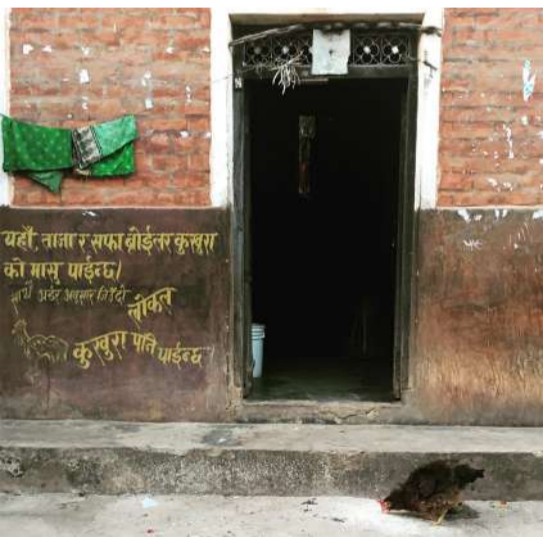 यहाँ ताजा र सफा ब्रोईलर कुखुरा
को मासु पाईन्छ।
साथै अर्डर अनुसार जिउँदो
लोकल
कुखुरा पनि पाईन्छ